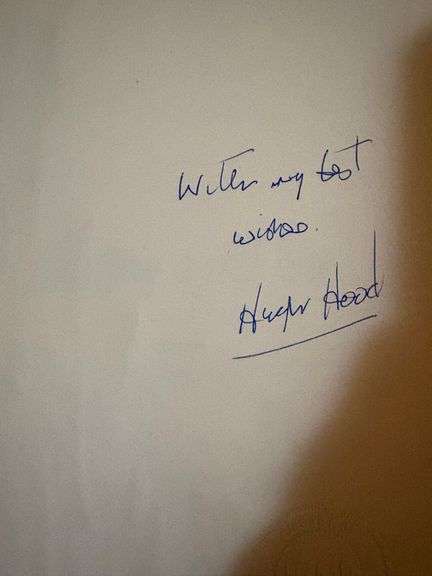 With my best
wishes.
Hugh Hood